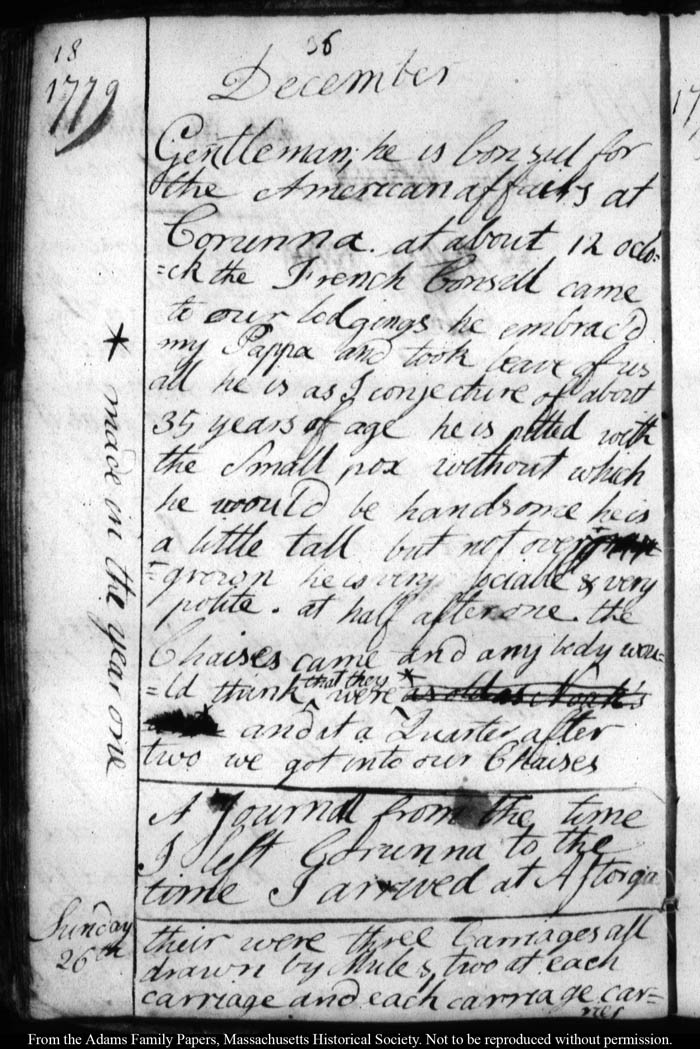 18
36
1779
December
Gentleman; he is Consul for
the American affairs at
Corunna. at about 12 oclo-
=ck the French Consul came
to our lodgings he embrac'd
my Pappa and took leave of us
all he is as I conjecture of about
35 years of age he is pitted with
the Small pox without which
he would be handsome he is
a little tall but not over
=grown he is very sociable & very
polite. at half after one the
Chaises came and any body wou-
=ld think that they were * as old as Noah's
and at a Quarter after
two we got into our Chaises
* made in the year one
A Journal from the time
I left Corunna to the
time I arrived at Astorga
Sunday
26th
their were three Carriages all
drawn by Mules, two at each
carriage and each carriage car=
ries
17
From the Adams Family Papers, Massachusetts Historical Society. Not to be reproduced without permission.